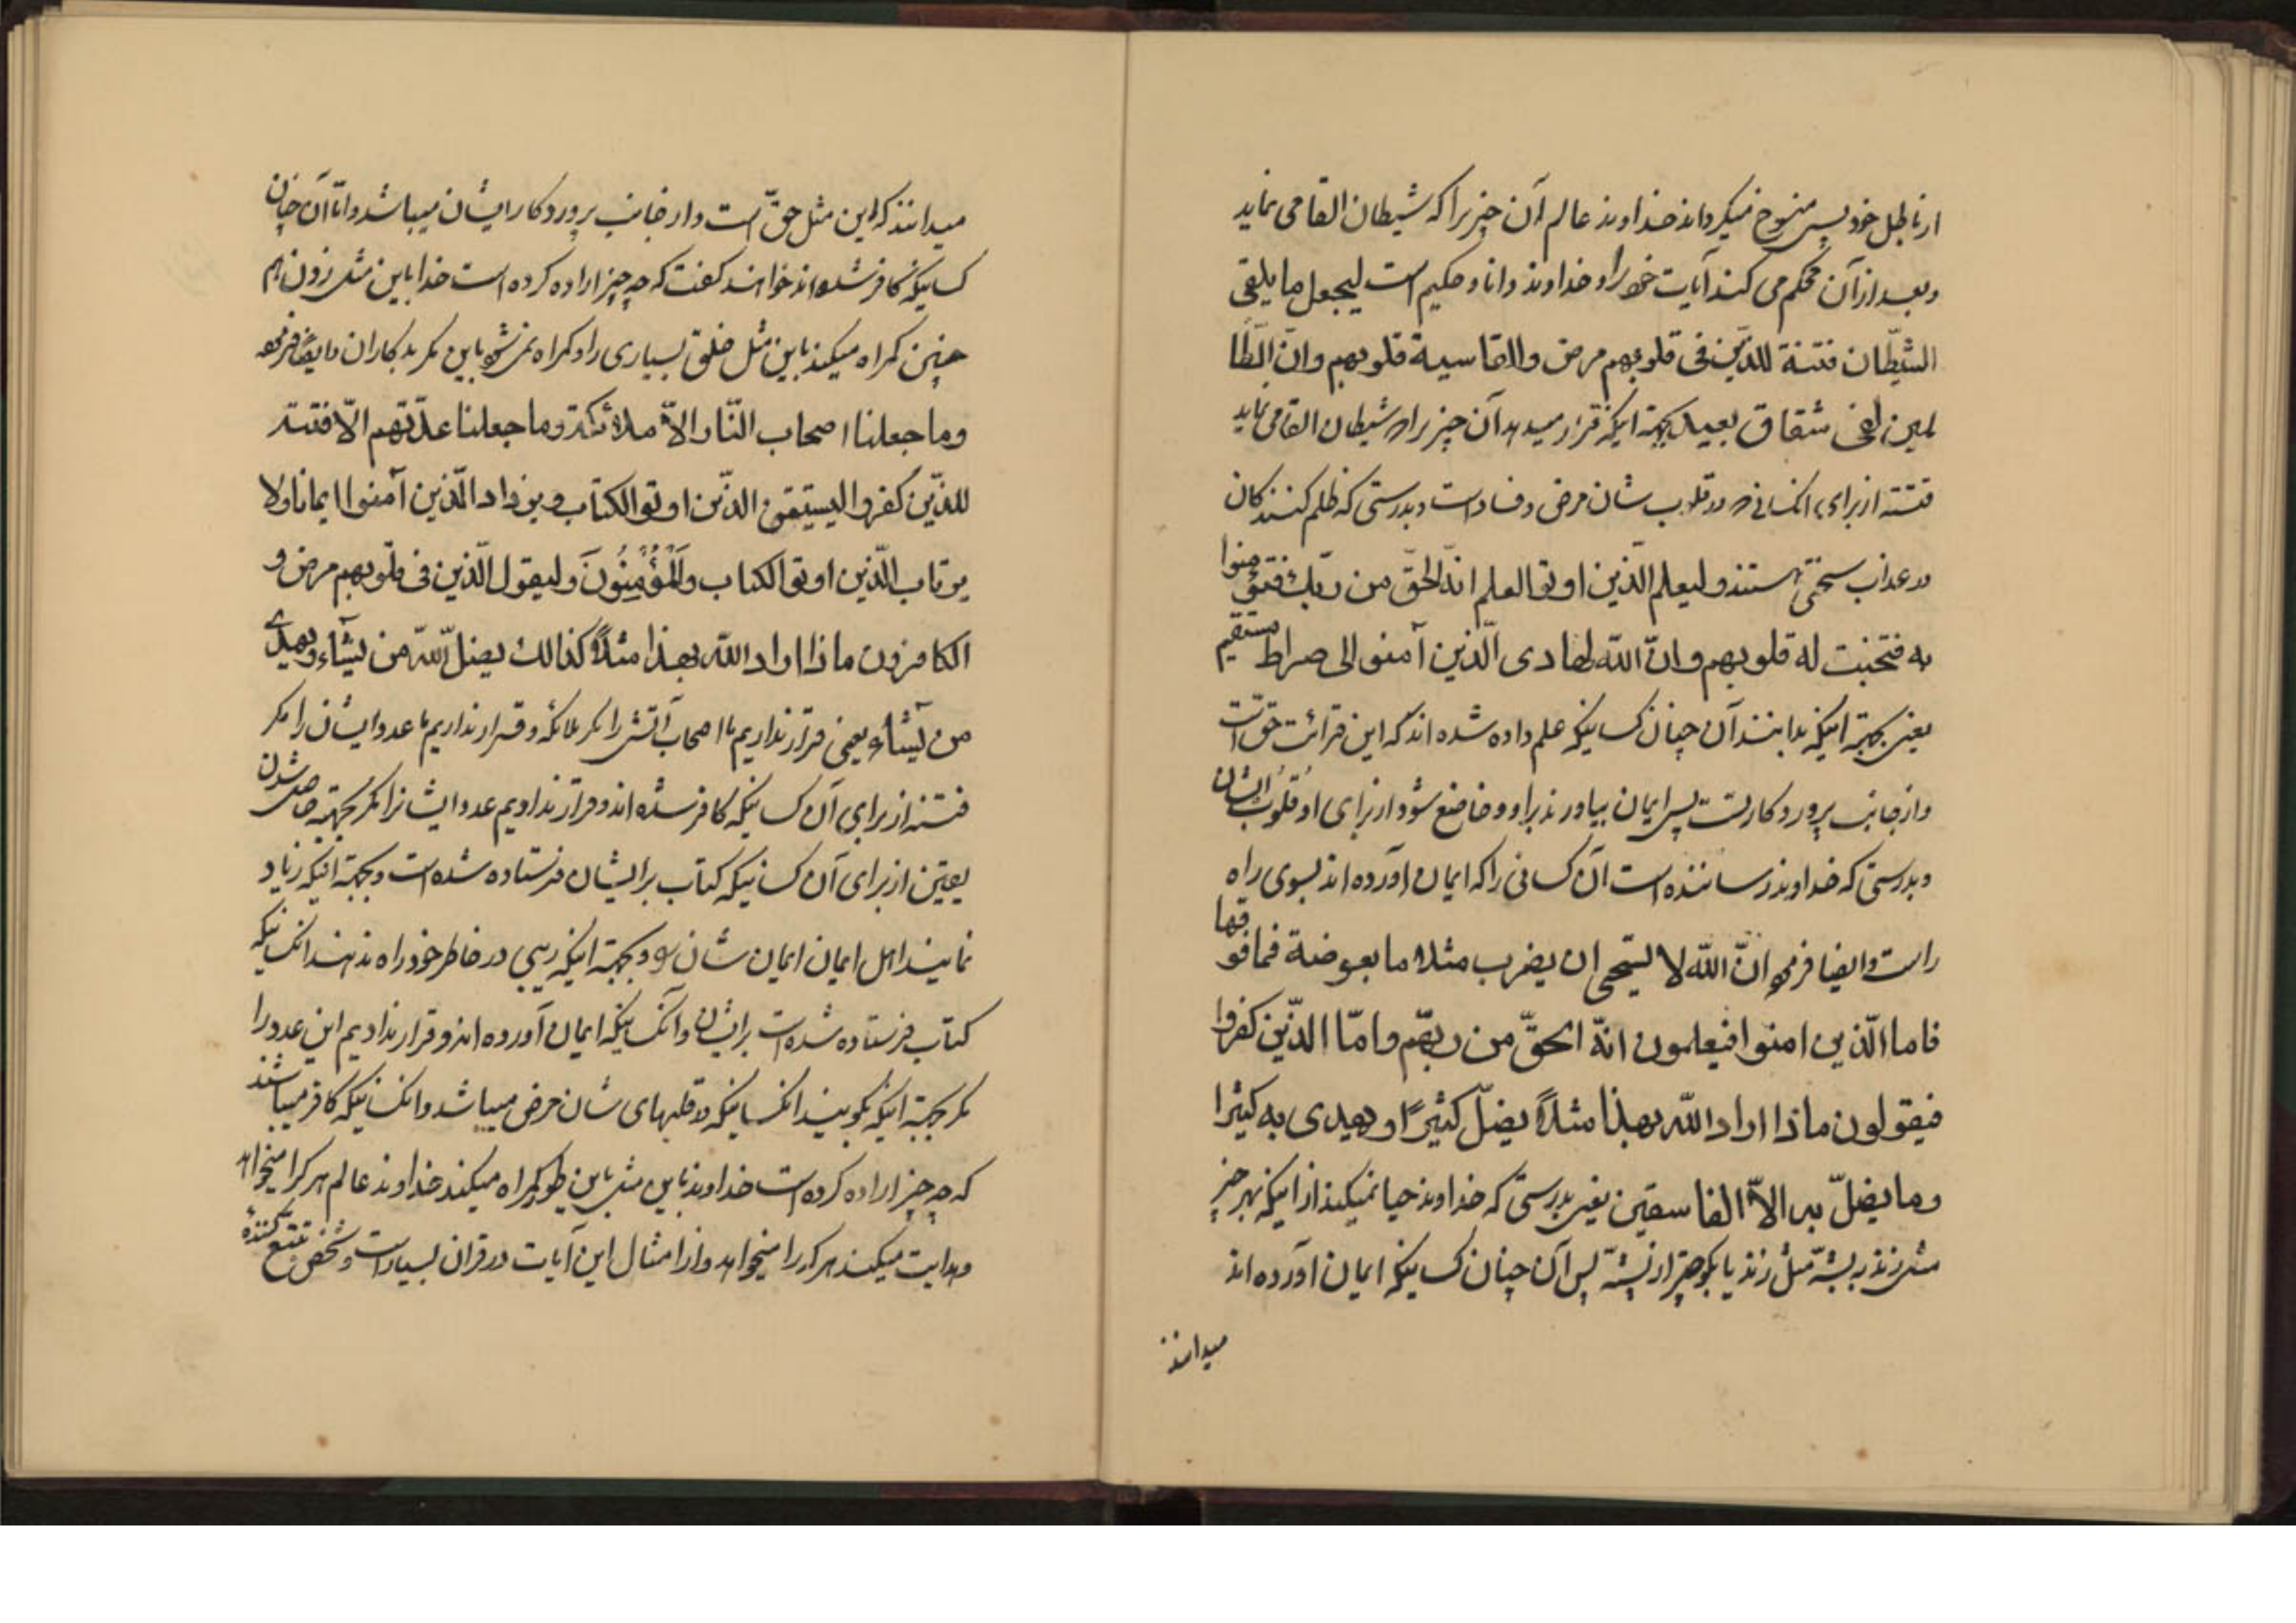 از باطل خود پس منسوخ میگرداند خداوند عالم آن چیز را که شیطان القا می نماید
و بعد از آن محکم می کند آیات خود را و خداوند دانا و حکیم است لیجعل ما یلقی
الشیّطان فتنة للذّین فی قلوبهم مرض والقاسیة قلوبهم وانّ الظّا
لمین لفی شقاق بعید بجهة اینکه قرار میدهد آن چیز را که شیطان القا می نماید
فتنه از برای آنکسانی که در قلوب شان مرض و فساد است و بدرستی که ظلم کنندگان
در عذاب سختی هستند ولیعلم الّذین اوتوالعلم انّه الحقّ من ربّک فتؤمنوا
به فتخبت له قلوبهم وانّ اللّه لهادی الّذین آمنو الی صراط مستقیم
یعنی بجهة اینکه بدانند آن چنان کسانیکه علم داده شده اند که این قرائت حق است
و از جانب پروردگار تست پس ایمان بیاورند براو و خاضع شود از برای او قلوب ایشان
و بدرستی که خداوند رساننده است آن کسانی را که ایمان آورده اند بسوی راه
راست وایضا فرموده انّ اللّه لا یستحی ان یضرب مثلا ما بعوضة فما فوقها
فاما الّذین امنوا فیعلمون انّه الحقّ من ربّهم وامّا الذّین کفروا
فیقولون ماذا اراد اللّه بهذا مثلاً یضلّ کثیرًا و یهدی به کثیرا
وما یضلّ به الاّ الفاسقین یعنی بدرستی که خداوند حیا نمیکند از اینکه بهر چیز
مثل زند به پشّه مثل زند یا بکوچکتر از پشّه پس آن چنان کسانیکه ایمان آورده اند
میدانند
میدانند که این مثل حقّ است و از جانب پروردگار ایشان میباشد وامّا آن چنان
کسانیکه کافر شده اند خواهند گفت که چه چیز اراده کرده است خدا باین مثل زدن هم
چنین گمراه میکند باین مثل خلق بسیاری را و گمراه نمی شود باین مگر بدکاران و ایضًا فرموده
وما جعلنا اصحاب النّار الاّ ملائکة وما جعلنا عدّتهم الاّ فتنة
للذّین کفروا لیستیقن الذّین اوتو الکتاب و یزداد الّذین آمنوا ایمانا ولا
یرتاب الّذین اوتو الکتاب والْمُؤْمِنُونَ ولیقول الّذین فی قلوبهم مرض و
الکافرون ماذا اراد اللّه بهذا مثلاً کذالک یضلّ اللّه من یشآء ویهدی
من یشآء یعنی قرار ندادیم ما اصحاب آتش را مگر ملائکه و قرار ندادیم ما عدد ایشان را مگر
فتنه از برای آن کسانیکه کافر شده اند و قرار ندادیم عدد ایشانرا مگر بجهة حاصل شدن
یقین از برای آن کسانیکه کتاب بر ایشان فرستاده شده است و بجهة اینکه زیاد
نمایند اهل ایمان ایمان شان را و بجهة اینکه ریبی در خاطر خود راه ندهند آنکسانیکه
کتاب فرستاده شده است بر ایشان وآنکسانیکه ایمان آورده اند و قرار ندادیم این عدد را
مگر بجهة اینکه بگویند انکسانیکه در قلبهای شان مرض میباشد وانکسانیکه کافر میباشند
که چه چیز اراده کرده است خداوند باین مثل باین طور گمراه میکند خداوند عالم هر که را میخواهد
و هدایت میکند هر که را میخواهد و از امثال این آیات در قران بسیار است و شخص تتبّع کننده